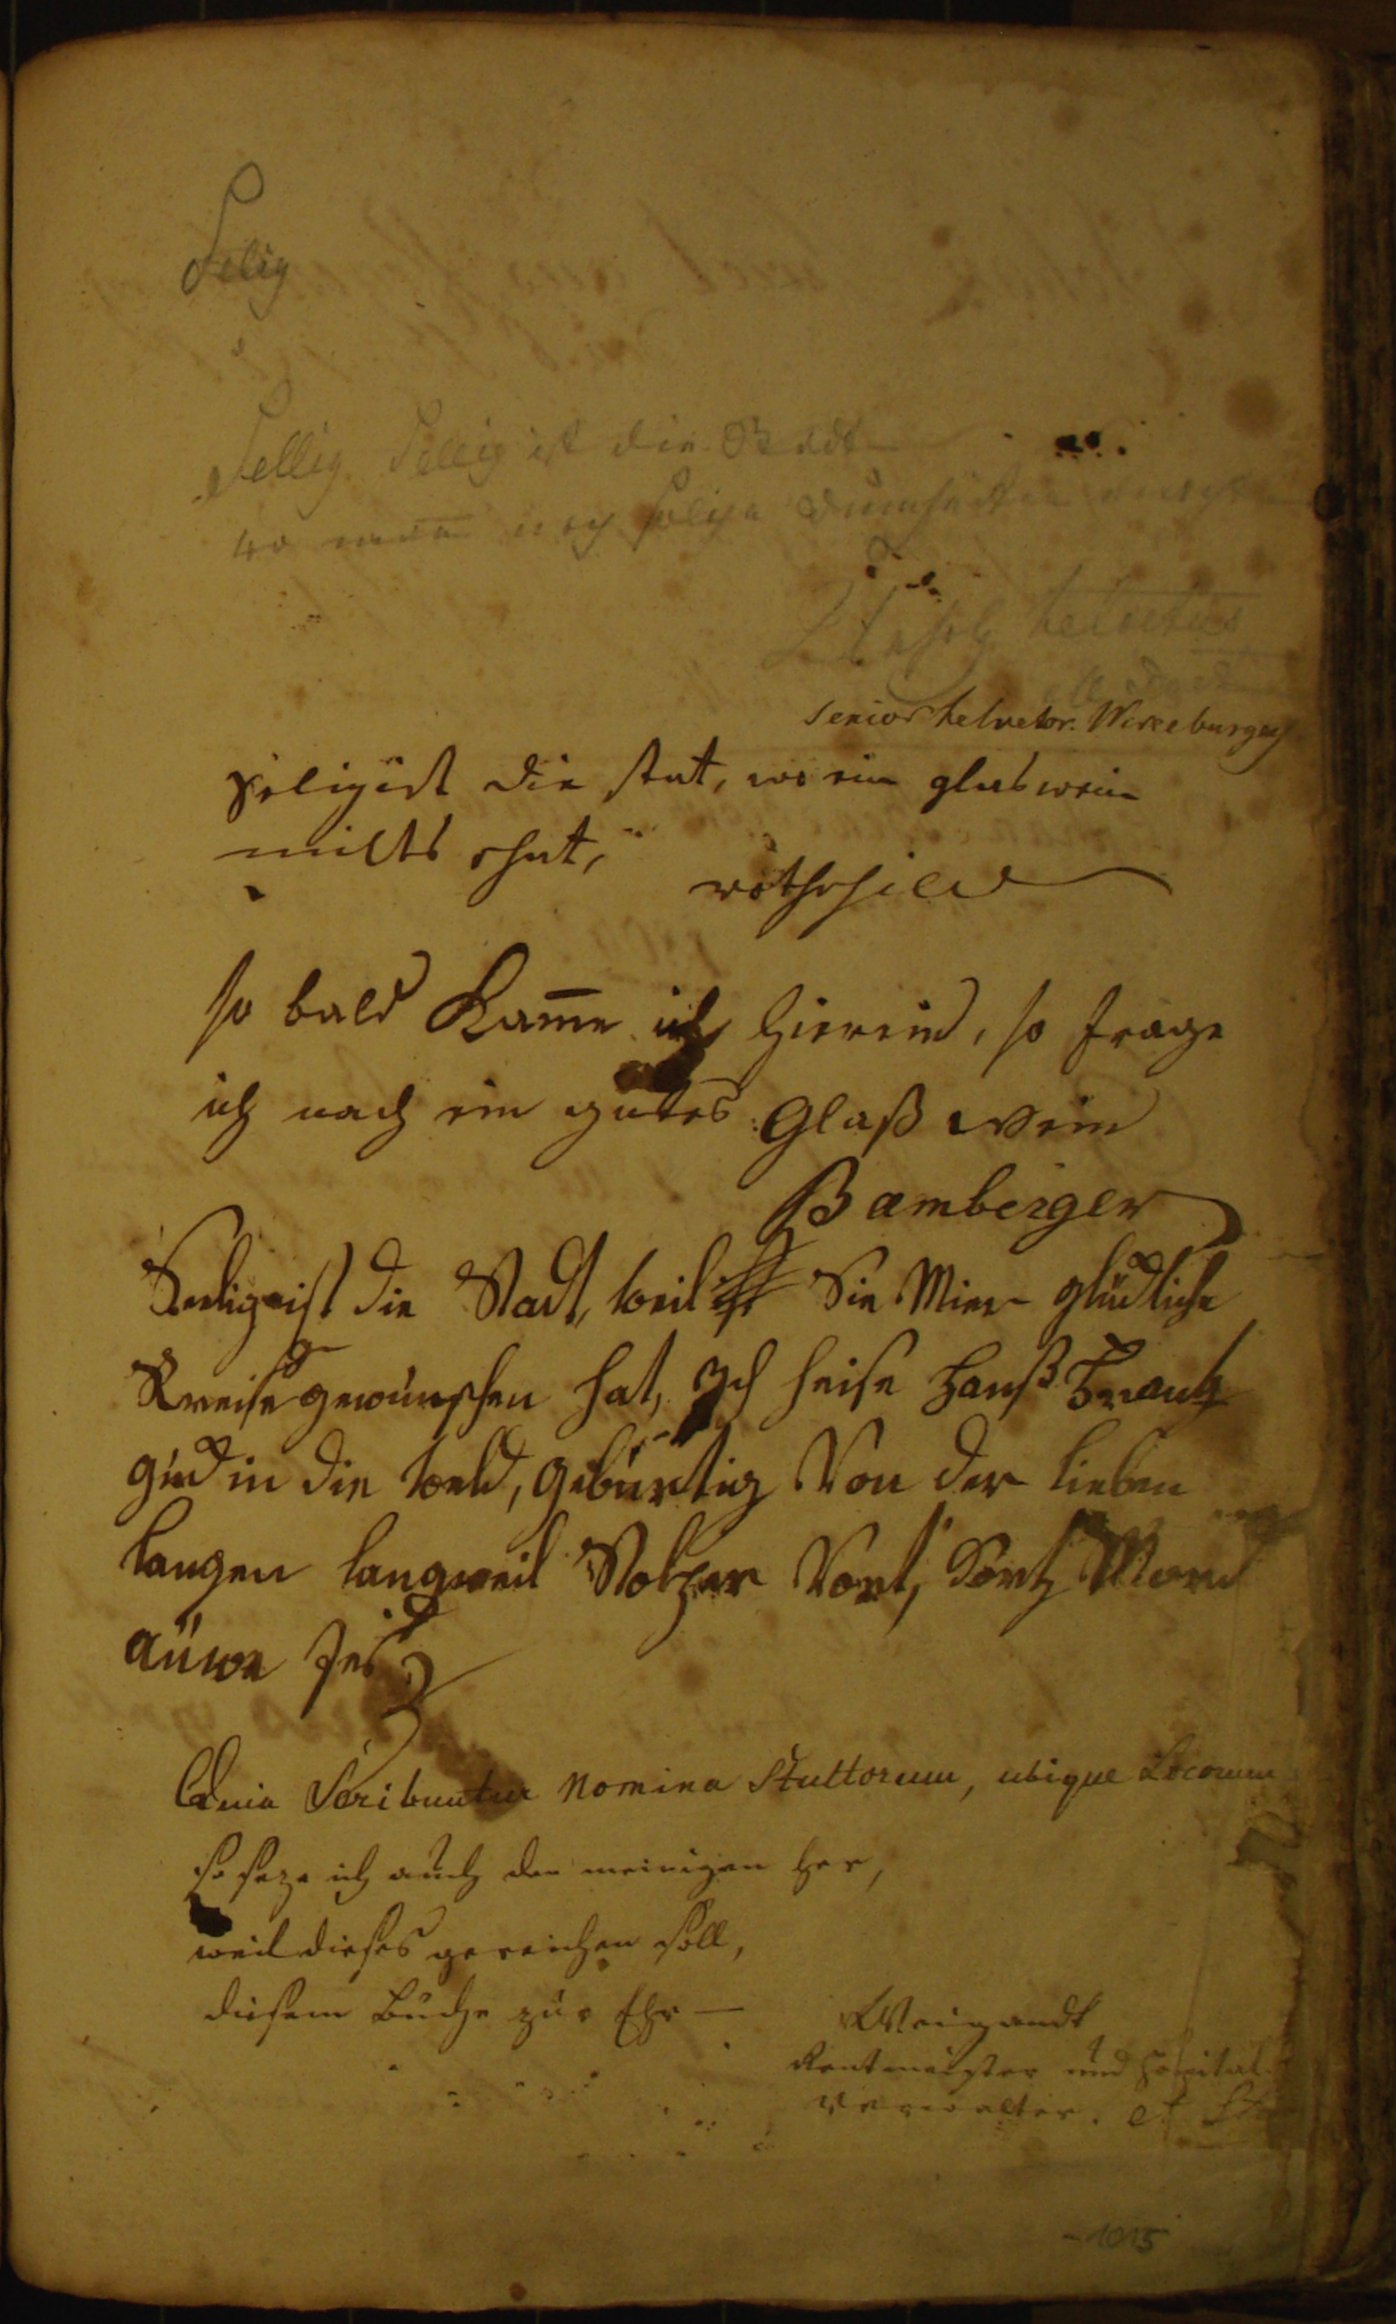 Selig
Sellig Sellig ist die Stadt
wo man noch solche Dumheiten macht
helvetus
Senior helvetor. Wirceburgens
Seligist die stat, wo ein glas wein
nichts chut,
rothschild
so bald Kame ich hierein, so frage
ich nach ein gutes Glaß wein
Bamberger
Seelig ist die Stadt, weil Sie Mier glückliche
Reeise gewünschen hat, Ich heise Hanß
guck in die weld, gebürtig Von der lieben
langen langweil
Quia Scribuntur Nomina Stultorum, ubique Locorum
so seze ich auch den meinigen her,
weil dieses gereichen soll,
diesem Buche zur Ehr —
Weigandt
Rentmeister und Hospital
Verwalter. et
1015